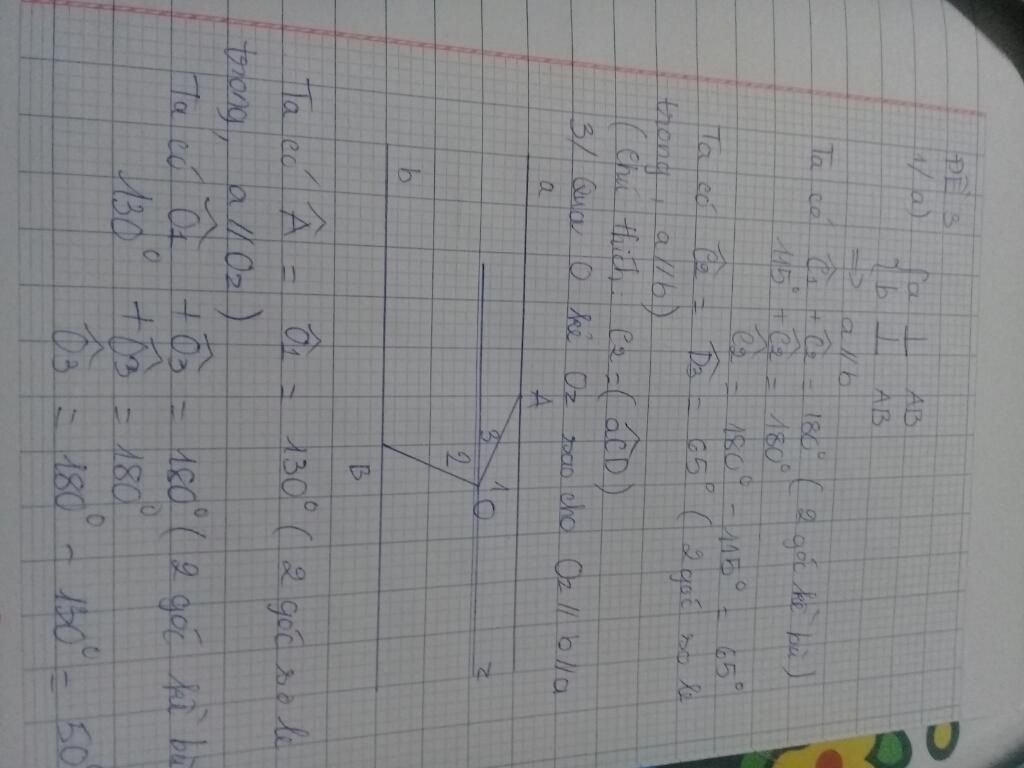 ĐỀ 3
1/ a) { a ⊥ AB
b ⊥ AB
=> a//b
Ta có Ĉ1 + Ĉ2 = 180° ( 2 góc kề bù)
115° + Ĉ2 = 180°
Ĉ2 = 180° - 115° = 65°
Ta có Ĉ2 = D̂2 = 65° ( 2 góc so le
trong, a//b)
( Chú thích: C2 = (aĈD)
3/ Qua O kẻ Oz sao cho Oz // b // a
a
A
3
1
O
2
z
b
B
Ta có Â = Ô1 = 130° ( 2 góc so le
trong, a // Oz )
Ta có Ô1 + Ô3 = 180° ( 2 góc kề bù
130° + Ô3 = 180°
Ô3 = 180° - 130° = 50°